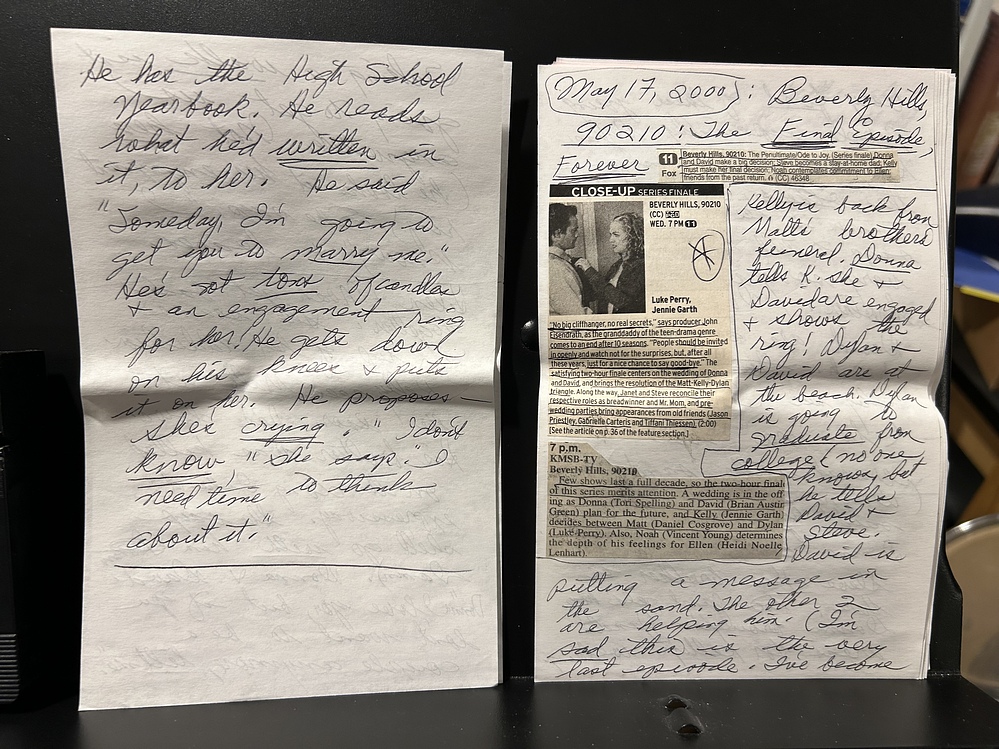 He has the High School
Yearbook. He reads
what he'd written in
it, to her. He said
"Someday, I'm going to
get you to marry me."
He's got tons of candles
+ an engagement ring
for her. He gets down
on his knees + puts
it on her. He proposes—
she's crying... "I don't
know," she says. "I
need time to think
about it."
May 17, 2000: Beverly Hills,
90210! The Final Episode,
Forever
11
Fox
Beverly Hills, 90210: The Penultimate/Ode to Joy. (Series finale) Donna
and David make a big decision; Steve becomes a stay-at-home dad; Kelly
must make her final decision; Noah contemplates commitment to Ellen;
friends from the past return. (CC) 46348
CLOSE-UP SERIES FINALE
BEVERLY HILLS, 90210
(CC)
WED. 7 PM 11
Luke Perry,
Jennie Garth
"No big cliffhanger, no real secrets," says producer John
Eisendrath, as the granddaddy of the teen-drama genre
comes to an end after 10 seasons. "People should be invited
in openly and watch not for the surprises, but, after all
these years, just for a nice chance to say good-bye." The
satisfying two-hour finale centers on the wedding of Donna
and David, and brings the resolution of the Matt-Kelly-Dylan
triangle. Along the way, Janet and Steve reconcile their
respective roles as breadwinner and Mr. Mom, and pre-
wedding parties bring appearances from old friends (Jason
Priestley, Gabrielle Carteris and Tiffani Thiessen). (2:00)
[See the article on p. 36 of the feature section.]
7 p.m.
KMSB-TV
Beverly Hills, 90210
Few shows last a full decade, so the two-hour finale
of this series merits attention. A wedding is in the off-
ing as Donna (Tori Spelling) and David (Brian Austin
Green) plan for the future, and Kelly (Jennie Garth)
decides between Matt (Daniel Cosgrove) and Dylan
(Luke Perry). Also, Noah (Vincent Young) determines
the depth of his feelings for Ellen (Heidi Noelle
Lenhart).
Kelly is back from
Matt's brothers
funeral. Donna
tells K. she +
David are engaged
+ shows the
ring! Dylan +
David are at
the beach. Dylan
is going to
graduate from
college! no one
knows, but
he tells
David +
Steve.
David is
putting a message in
the sand. The other 2
are helping him. (I'm
sad this is the very
last episode. I've become